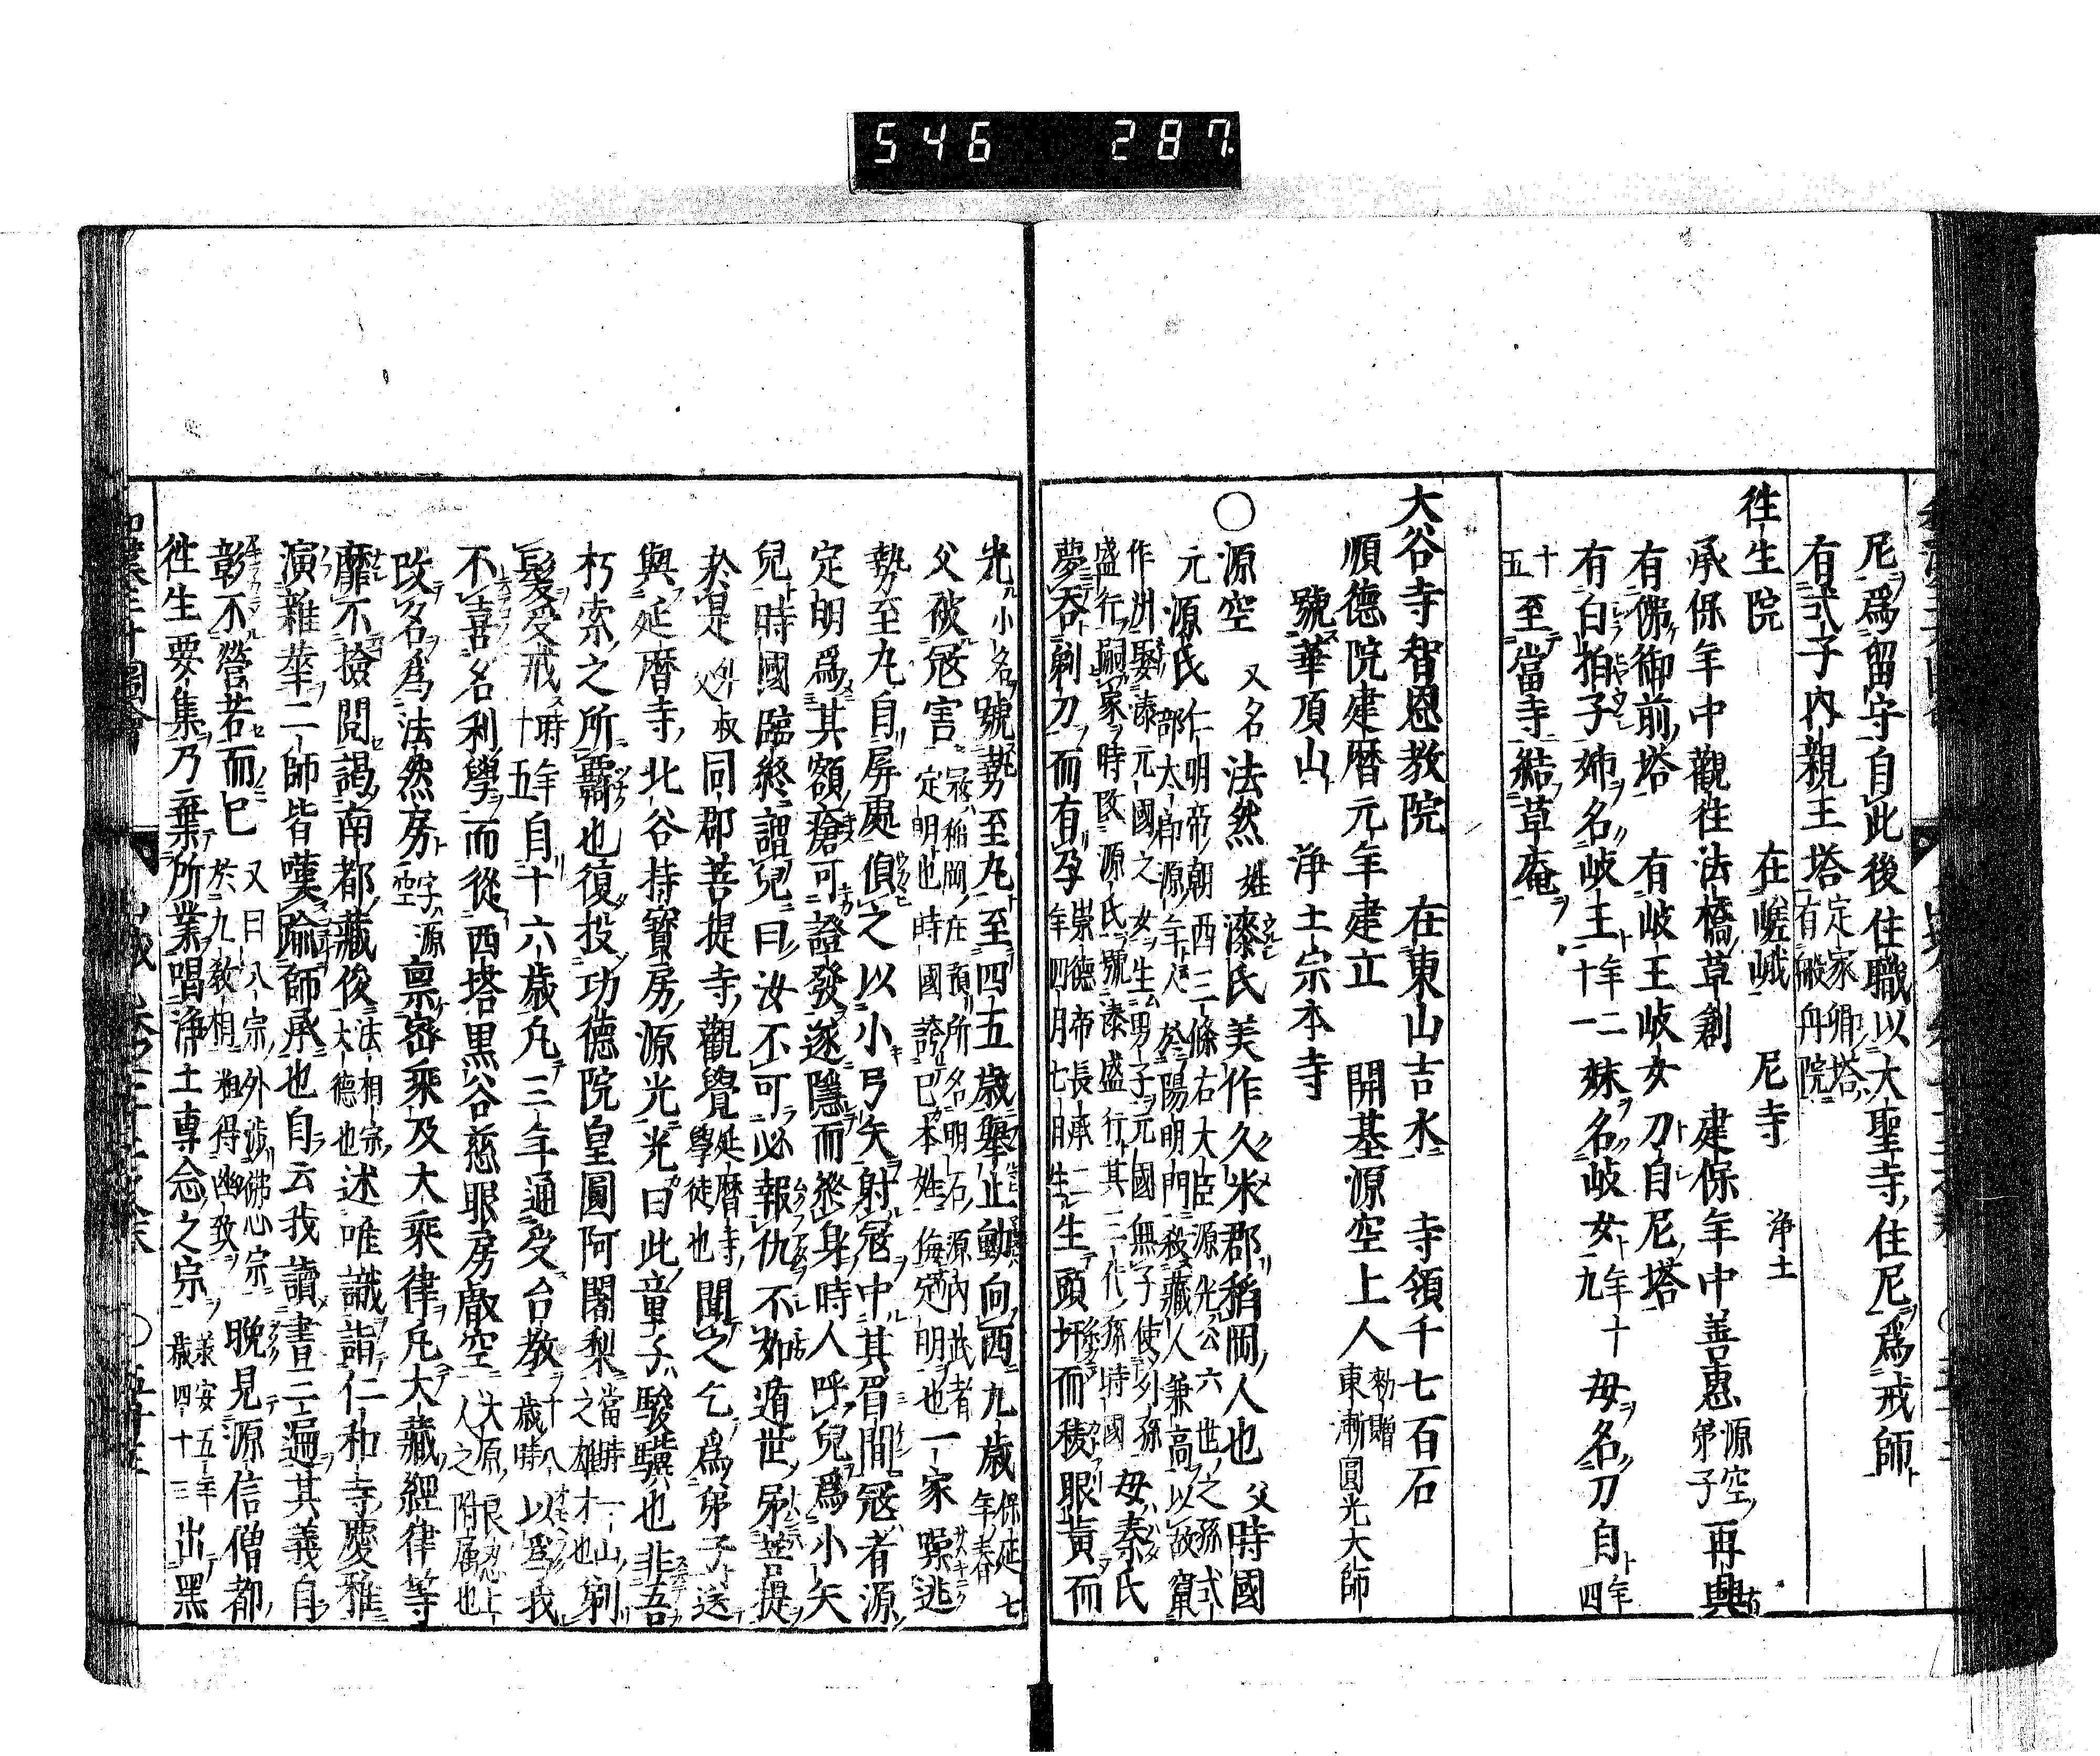 546 287
尼爲留守自此後住職以大聖寺住尼爲戒師
有式子内親王塔 定家卿塔 有般舟院
往生院 在嵯峨 尼寺 浄土
承保年中觀往法橋草創 建保年中善惠 源空弟子 再興
有佛御前塔 有岐王岐女刀自尼塔
有白拍子姉名岐王 年二十一 妹名岐女 年十九 母名刀自 年四
十五 至當寺結草庵
大谷寺智恩教院 在東山吉水 寺領千七百石
順德院建暦元年建立 開基源空上人 勅贈東漸圓光大師
號華頂山 浄土宗本寺
○源空 又名法然 姓漆氏美作久米郡稻岡人也 父時國
元源氏 仁明帝朝西三條右大臣源光公六世之孫式部太郎源年 於陽明門殺藏人兼高以故竄
作洲娶漆元國之女生男子元國無子使外孫盛行嗣家時改源氏號漆盛行其三代孫時國 母秦氏
夢呑剃刀而有孕 崇德帝長承二年四月七日生 生頭圩而稜眼黃而
光小名號勢至丸至四五歳擧止動向西九歳 保延七年春
父被冦害 冦稻岡在預所名明石源内武者定明也時國誇己本姓侮定明也 一家躁逃
勢至丸自屏處偵之以小弓矢射冦中其眉間冦者源
定明爲其額瘡可證發遂隱而終身時人呼兒爲小矢
兒時國臨終謂兒曰汝不可必報仇不如遁世弔菩提
於是 外叔父 同郡菩提寺觀覺 延暦寺學徒也 聞之乞爲弟子送
與延暦寺北谷持寳房源光光曰此童子駿驥也非吾
朽索之所覊也復投功德院皇圓阿闍梨 當時一山之雄才也 剃
髮受戒 時年十五 自十六歳凡三年通受台教 十八歳時 以爲我
不喜名利學而從西塔黒谷慈眼房叡空 大原良忍上人之附属也
改名爲法然房 字源空 禀密乘及大乘律凡大藏經律等
靡不撿閲謁南都藏俊 法相宗大德也 述唯識詣仁和寺慶雅
演雜華二師皆嘆踰師承也自云我讀書三遍其義自
彰不營若而已 又曰八宗外渉佛心宗於九教相粗得幽致 晩見源信僧都
往生要集乃棄所業唱浄土專念之宗 承安五年歳四十三 出黑